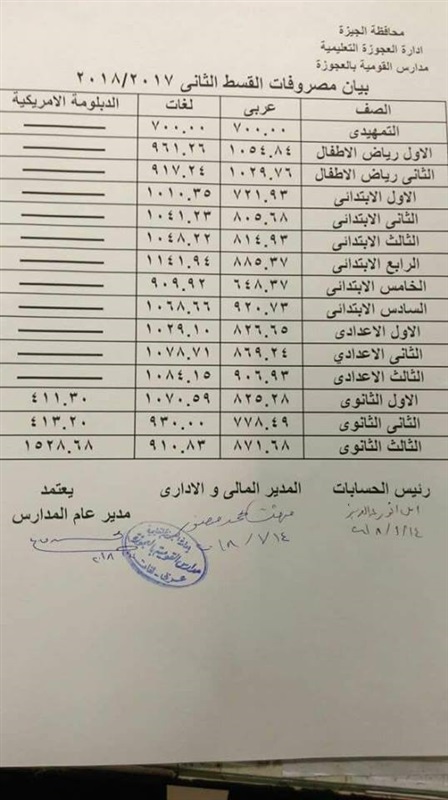 محافظة الجيزة
ادارة العجوزة التعليمية
مدارس القومية بالعجوزة
بيان مصروفات القسط الثانى ٢٠١٨/٢٠١٧
الصف عربى لغات الدبلومة الامريكية
التمهيدى ٧٠٠.٠٠ ٧٠٠.٠٠
الاول رياض الاطفال ١٠٥٤.٨٤ ٩٦١.٢٦
الثانى رياض الاطفال ١٠٢٩.٧٦ ٩١٧.٢٤
الاول الابتدائى ٧٢١.٩٣ ١٠١٠.٣٥
الثانى الابتدائى ٨٠٥.٦٨ ١٠٤١.٢٣
الثالث الابتدائى ٨١٤.٩٣ ١٠٤٨.٢٢
الرابع الابتدائى ٨٨٥.٣٧ ١١٤١.٩٤
الخامس الابتدائى ٦٤٨.٣٧ ٩٠٩.٩٢
السادس الابتدائى ٩٢٠.٧٣ ١٠٦٨.٦٦
الاول الاعدادى ٨٢٦.٦٥ ١٠٢٩.١٠
الثانى الاعدادي ٨٦٩.٢٤ ١٠٧٨.٧١
الثالث الاعدادى ٩٠٦.٩٣ ١٠٨٤.١٥
الاول الثانوى ٨٢٥.٢٨ ١٠٧٠.٥٩ ٤١١.٣٠
الثانى الثانوى ٧٧٨.٤٩ ٩٣٠.٠٠ ٤١٣.٢٠
الثالث الثانوى ٨٧١.٦٨ ٩١٠.٨٣ ١٥٢٨.٦٨
رئيس الحسابات المدير المالى و الادارى يعتمد
مدير عام المدارس